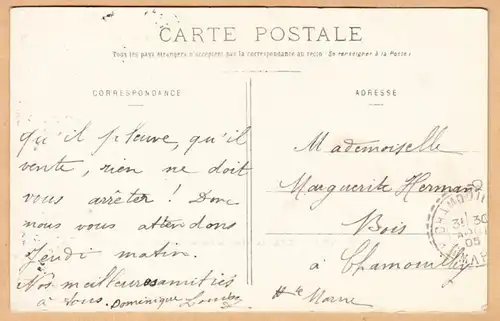 CARTE POSTALE
Tous les pays étrangers n'acceptent pas la correspondance au recto (Se renseigner à la Poste)
CORRESPONDANCE
ADRESSE
qu'il pleuve, qu'il
vente, rien ne doit
vous arrêter ! Donc
nous vous attendons
Jeudi matin.
Nos meilleures amitiés
à tous. Dominique
Mademoiselle
Marguerite Hermand
Bois
à Chamouilley
Hte Marne
05